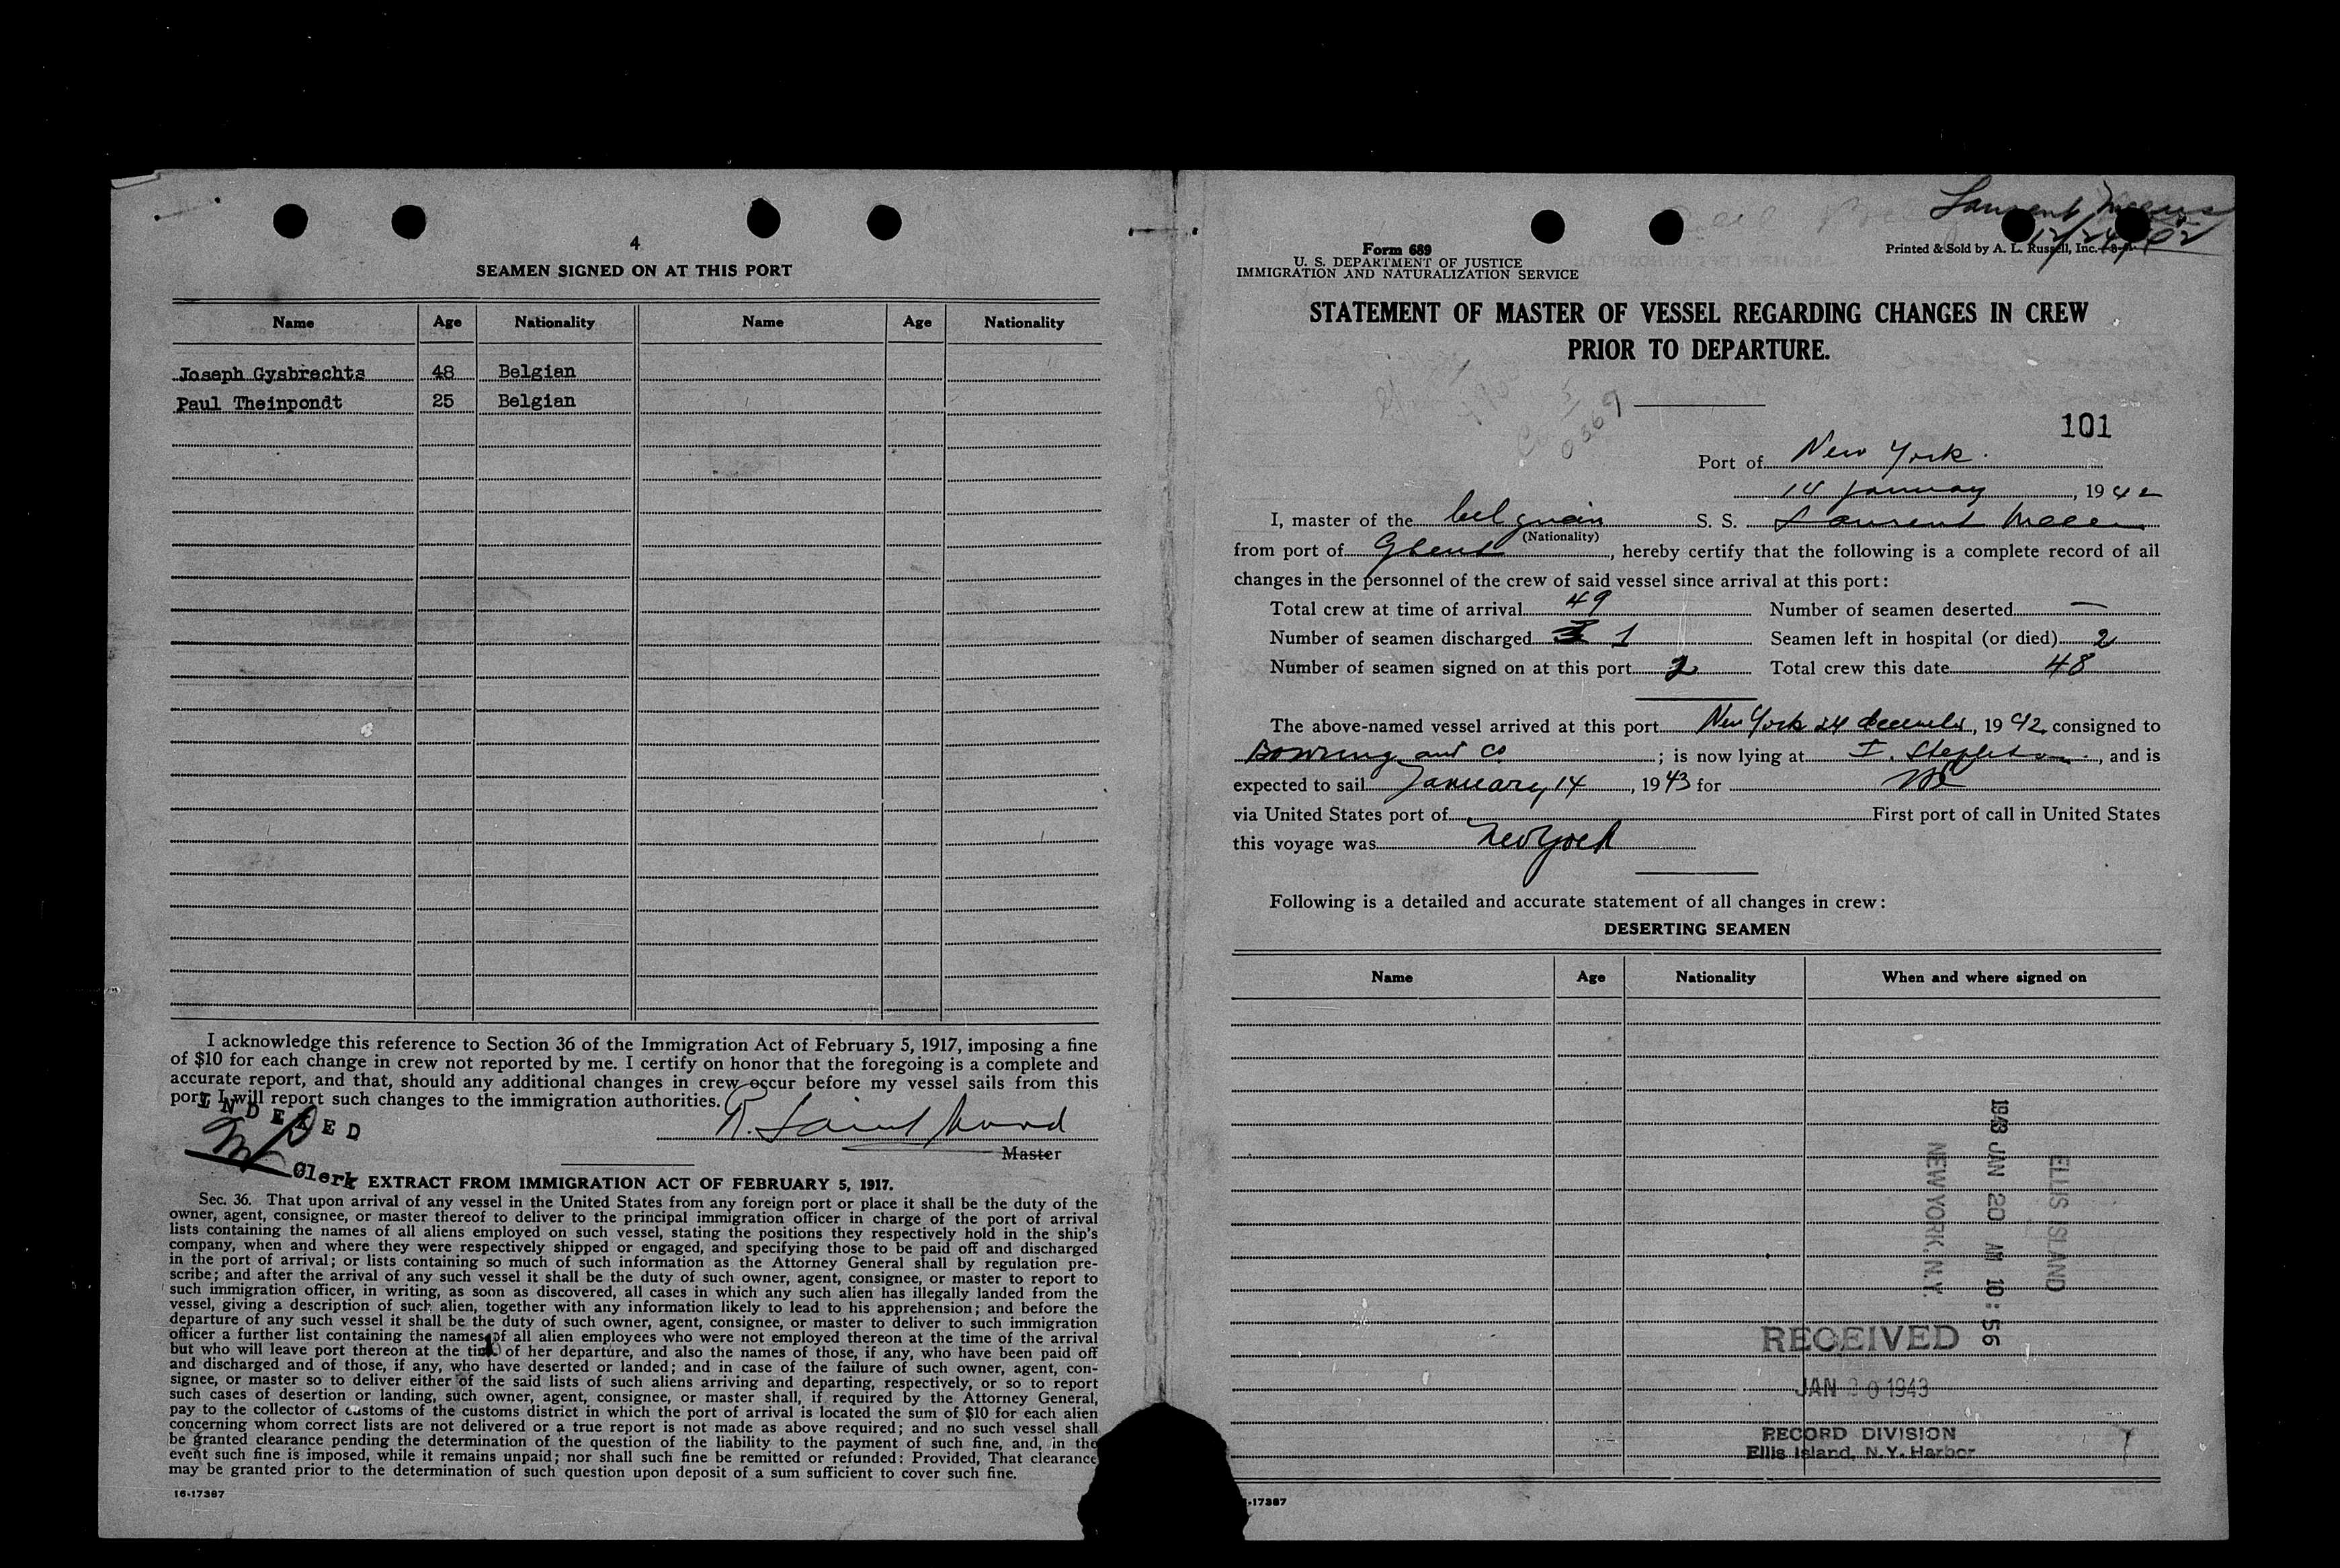 4
SEAMEN SIGNED ON AT THIS PORT
Name Age Nationality Name Age Nationality
Joseph Gysbrechts 48 Belgian
Paul Theinpondt 25 Belgian
I acknowledge this reference to Section 36 of the Immigration Act of February 5, 1917, imposing a fine
of $10 for each change in crew not reported by me. I certify on honor that the foregoing is a complete and
accurate report, and that, should any additional changes in crew occur before my vessel sails from this
port, I will report such changes to the immigration authorities.
INDEXED
R.
Master
Clerk
EXTRACT FROM IMMIGRATION ACT OF FEBRUARY 5, 1917.
Sec. 36. That upon arrival of any vessel in the United States from any foreign port or place it shall be the duty of the
owner, agent, consignee, or master thereof to deliver to the principal immigration officer in charge of the port of arrival
lists containing the names of all aliens employed on such vessel, stating the positions they respectively hold in the ship's
company, when and where they were respectively shipped or engaged, and specifying those to be paid off and discharged
in the port of arrival; or lists containing so much of such information as the Attorney General shall by regulation pre-
scribe; and after the arrival of any such vessel it shall be the duty of such owner, agent, consignee, or master to report to
such immigration officer, in writing, as soon as discovered, all cases in which any such alien has illegally landed from the
vessel, giving a description of such alien, together with any information likely to lead to his apprehension; and before the
departure of any such vessel it shall be the duty of such owner, agent, consignee, or master to deliver to such immigration
officer a further list containing the names of all alien employees who were not employed thereon at the time of the arrival
but who will leave port thereon at the time of her departure, and also the names of those, if any, who have been paid off
and discharged and of those, if any, who have deserted or landed; and in case of the failure of such owner, agent, con-
signee, or master so to deliver either of the said lists of such aliens arriving and departing, respectively, or so to report
such cases of desertion or landing, such owner, agent, consignee, or master shall, if required by the Attorney General,
pay to the collector of customs of the customs district in which the port of arrival is located the sum of $10 for each alien
concerning whom correct lists are not delivered or a true report is not made as above required; and no such vessel shall
be granted clearance pending the determination of the question of the liability to the payment of such fine, and, in the
event such fine is imposed, while it remains unpaid; nor shall such fine be remitted or refunded: Provided, That clearance
may be granted prior to the determination of such question upon deposit of a sum sufficient to cover such fine.
16-17387
Laurent Meeus
Form 689
U. S. DEPARTMENT OF JUSTICE
IMMIGRATION AND NATURALIZATION SERVICE
Printed & Sold by A. L. Russell, Inc.
STATEMENT OF MASTER OF VESSEL REGARDING CHANGES IN CREW
PRIOR TO DEPARTURE.
101
Port of New York.
14 January, 1942
I, master of the belguain S. S. Laurent Meeus
(Nationality)
from port of Ghent, hereby certify that the following is a complete record of all
changes in the personnel of the crew of said vessel since arrival at this port:
Total crew at time of arrival 49 Number of seamen deserted —
Number of seamen discharged 1 Seamen left in hospital (or died) 2
Number of seamen signed on at this port 2 Total crew this date 48
The above-named vessel arrived at this port New York 24 december, 1942 consigned to
Bowring and Co; is now lying at Stapleton, and is
expected to sail January 14, 1943 for
via United States port of First port of call in United States
this voyage was New York
Following is a detailed and accurate statement of all changes in crew:
DESERTING SEAMEN
Name Age Nationality When and where signed on
ELLIS ISLAND
1943 JAN 20 AM 10:56
NEW YORK, N.Y.
RECEIVED
JAN 20 1943
RECORD DIVISION
Ellis Island, N.Y. Harbor
-17387